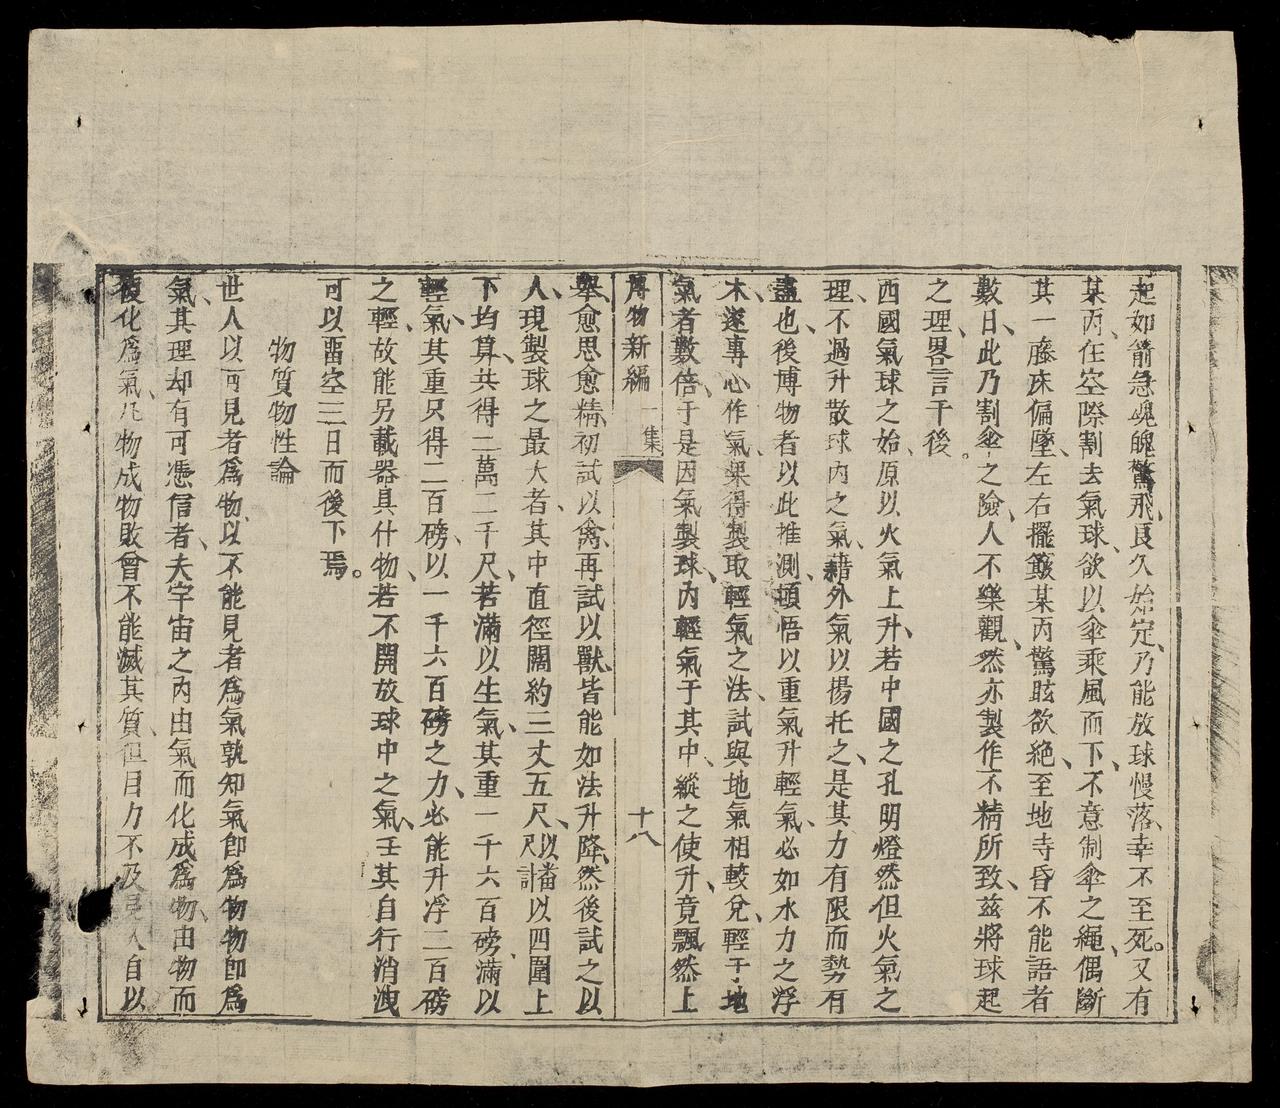 起如箭急魂魄驚飛、良久始定、乃能放球慢落、幸不至死。又有
某丙、在空際割去氣球、欲以傘乘風而下、不意制傘之繩、偶斷
其一、藤床偏墜、左右擺簸、某丙驚眩欲絕、至地寺昏不能語者
數日、此乃割傘之險、人不樂觀、然亦製作不精所致、茲將球起
之理、畧言于後。
西國氣球之始、原以火氣上升、若中國之孔明燈然、但火氣之
理、不過升散球內之氣、藉外氣以揚托之、是其力有限而勢有
盡也、後博物者以此推測、頓悟以重氣升輕氣、必如水力之浮
木、遂專心作氣、果得製取輕氣之法、試與地氣相較、兌輕于地
氣者數倍、于是因氣製球、內輕氣于其中、縱之使升、竟飄然上
博物新編 一集 十八
舉、愈思愈精、初試以禽、再試以獸、皆能如法升降、然後試之以
人、現製球之最大者、其中直徑闊約三丈五尺、以番尺計 以四圍上
下均算、共得二萬二千尺、若滿以生氣、其重一千六百磅、滿以
輕氣、其重只得二百磅、以一千六百磅之力、必能升浮二百磅
之輕、故能另載器具什物、若不開放球中之氣、壬其自行消洩
可以畱空三日而後下焉。
物質物性論
世人以可見者爲物、以不能見者爲氣、孰知氣卽爲物、物卽爲
氣、其理却有可憑信者、夫宇宙之內、由氣而化成爲物、由物而
復化爲氣、凡物成物敗、曾不能滅其質、但目力不及見、人自以